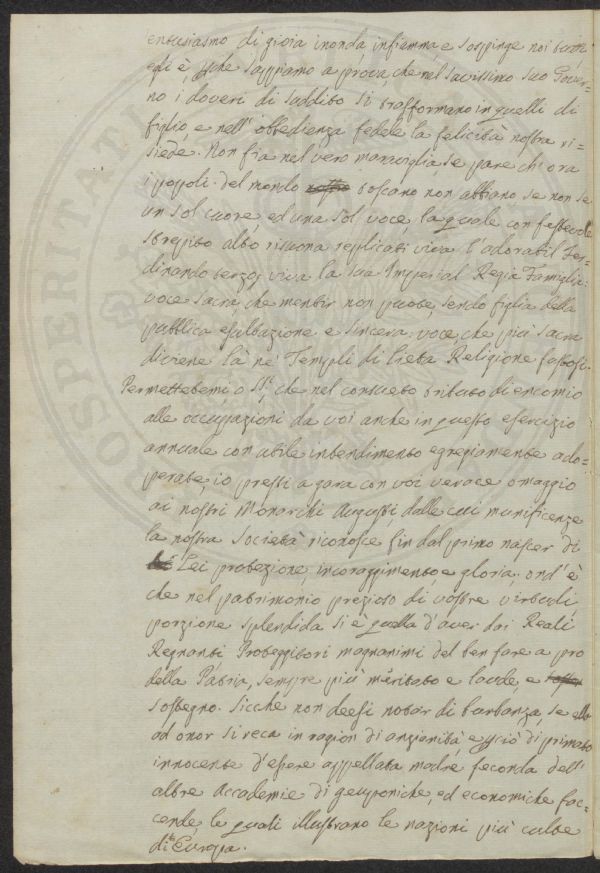 entusiasmo di gioia inonda infiamma e sospinge noi
egli è, che sappiamo a prova, che nel savissimo suo Gover-
no i doveri di suddito si trasformano in quelli di
figlio, e nell' obbedienza fedele la felicità nostra ri=
siede. Non fia nel vero maraviglia se pare ch' ora
i popoli del mondo toscano non abbiano se non se
un sol cuore, ed una sol voce, la quale con festevole
strepito alto risuona replicati viva l' adorabil Fer-
dinando terzo, viva la sua Imperial Regia Famiglia:
voce sacra, che mentir non puote, sendo figlia della
pubblica esultazione e sincera: voce, che più sacra
diviene là ne' Templi di lieta Religione fastosi.
Permettetemi o SS.i che nel consueto tributo di encomio
alle occupazioni da voi anche in questo esercizio
annuale con utile intendimento egregiamente ado=
perate, io presti a gara con voi verace omaggio
ai nostri Monarchi Augusti, dalle cui munificenze
la nostra Società riconosce fin dal primo nascer di
Lei protezione, incoraggimento, e gloria; ond' è
che nel patrimonio prezioso di vostre virtù di
porzione splendida si è quella d' aver dai Reali
Regnanti Proteggitori magnanimi del ben fare a pro
della Patria, sempre più meritato e laude, e
sostegno. Sicche non deesi notar di burbanza, se ella
ad onor si reca in ragion di anzianità e perciò di primato
innocente d' essere appellata madre feconda dell'
altre Accademie di geoponiche, ed economiche fac-
cende, le quali illustrano le nazioni più culte
di Europa.